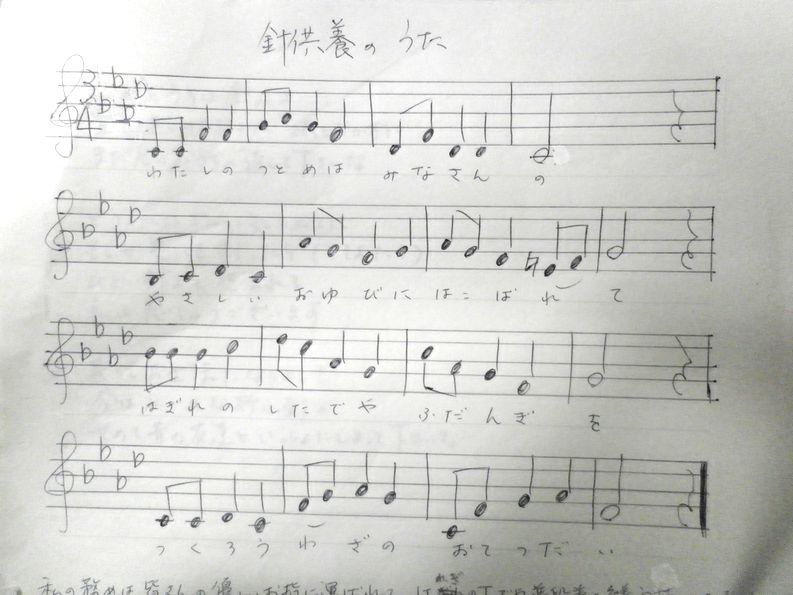 針供養のうた
3
4
わたしの つとめは みなさん の
やさしい おゆびに はこばれ て
はぎれの したでや ふだんぎ を
つくろう わざの おてつだ い
私の務めは皆さんの優しいお指に運ばれて